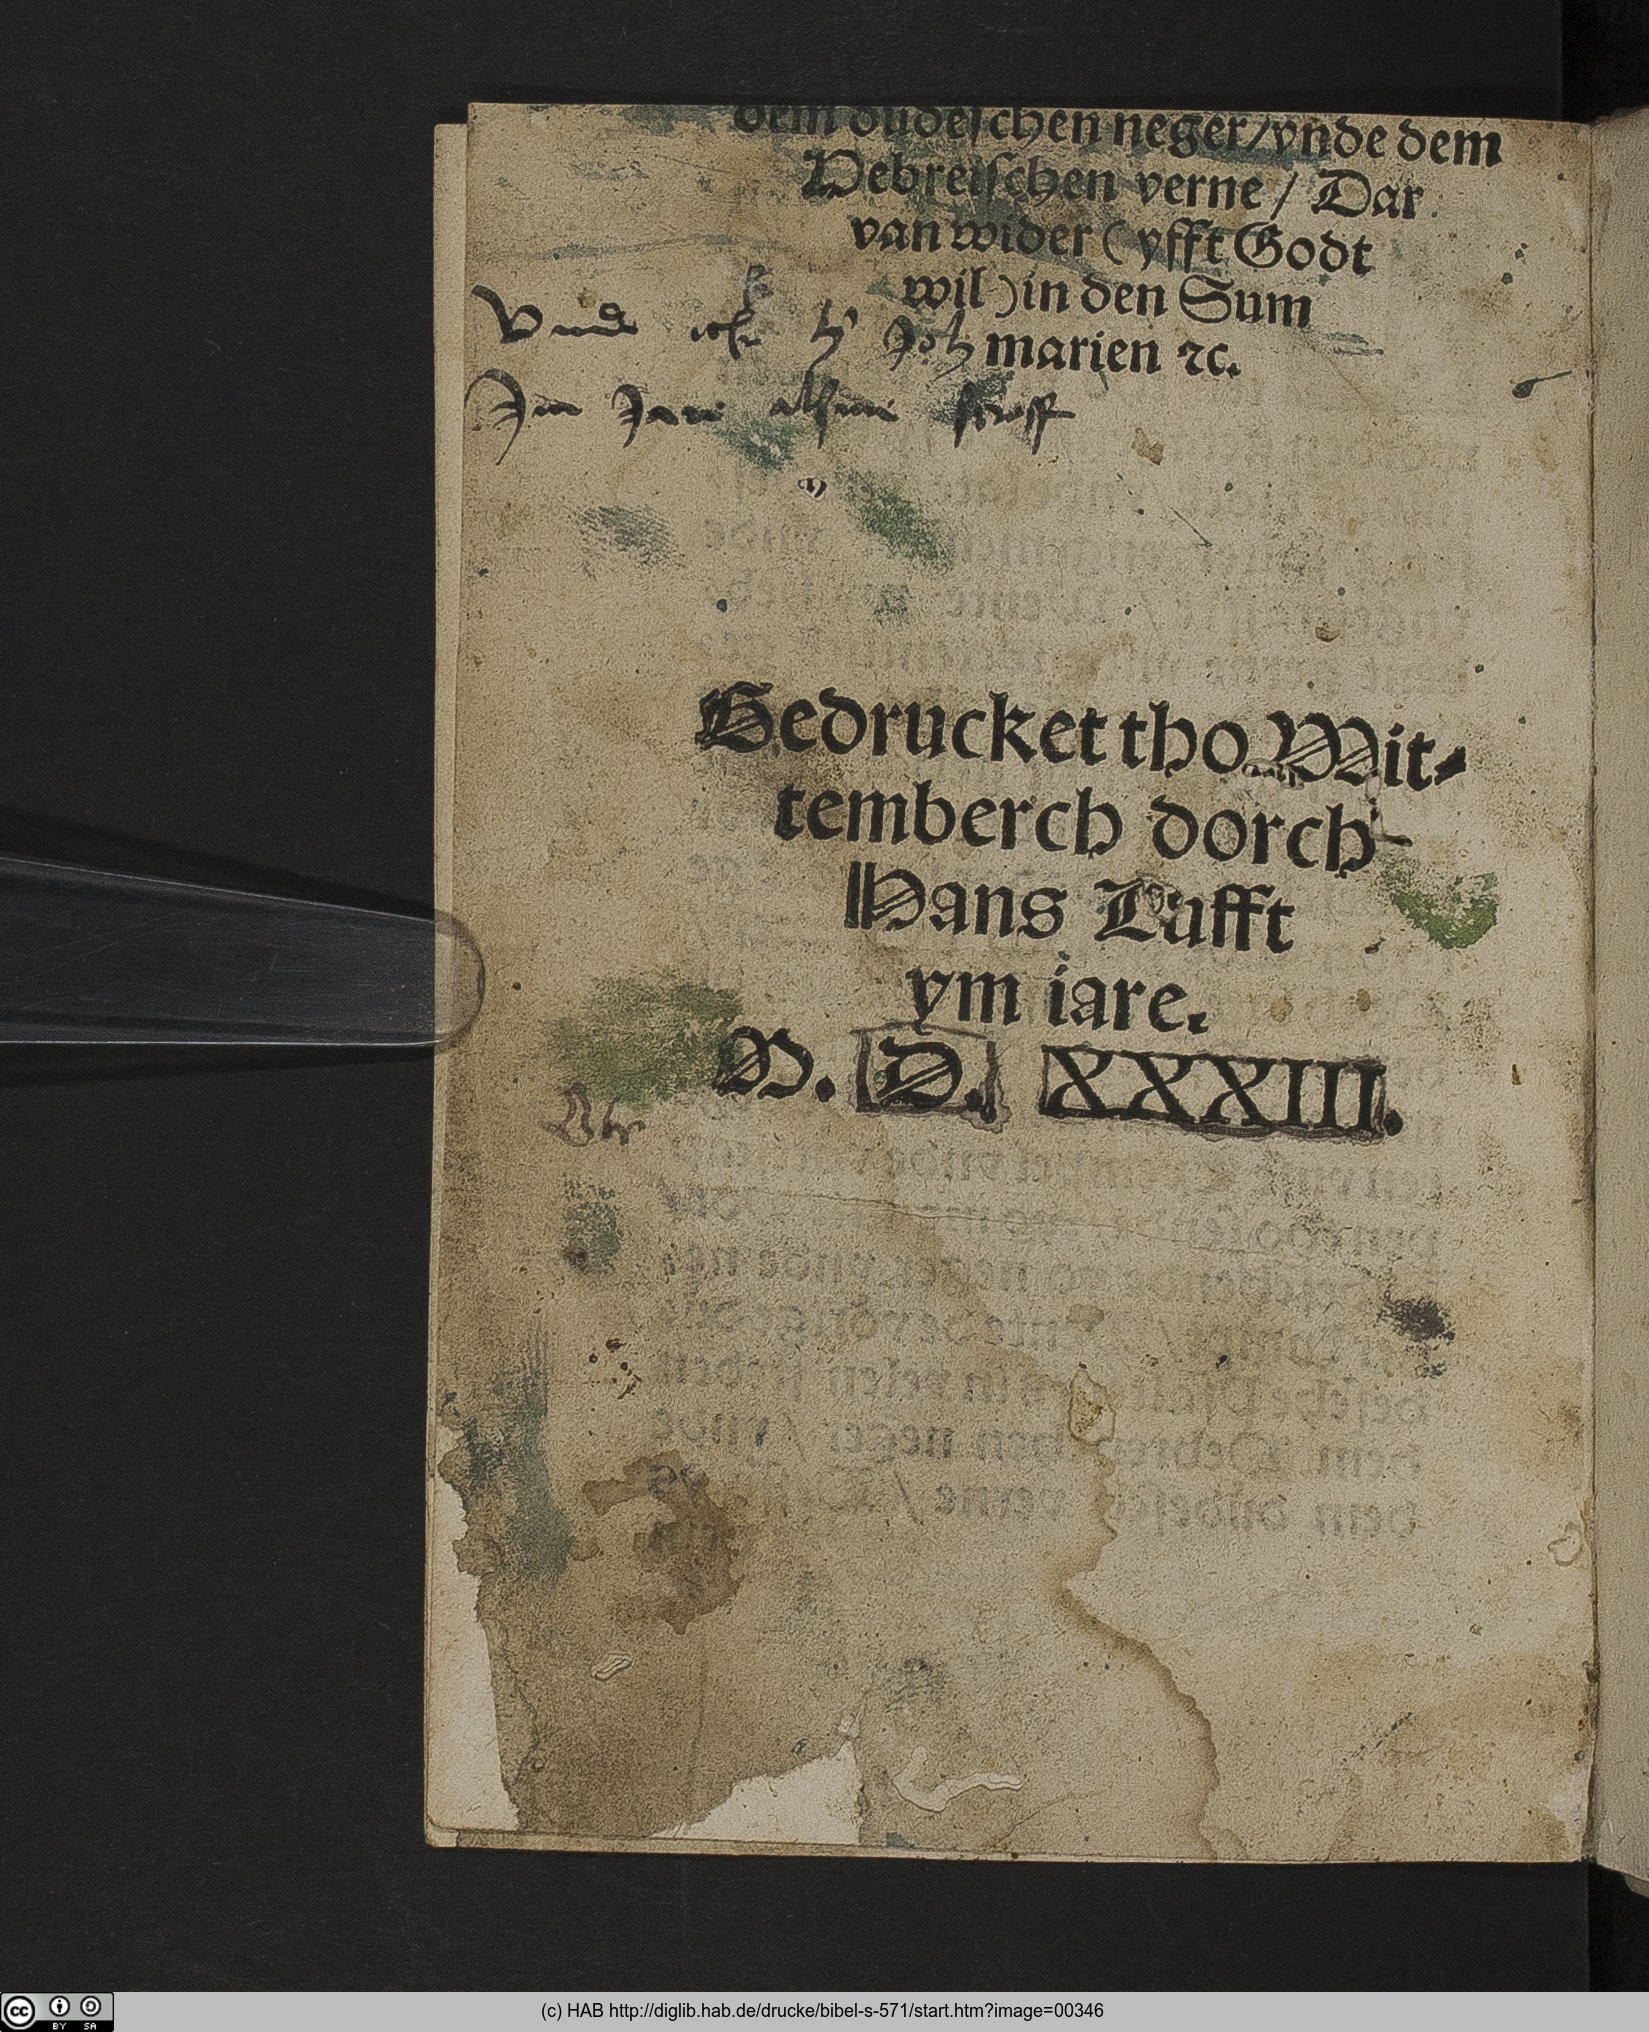 dem dudeschen neger/vnde dem
Hebreischen verne / Dar
van wider ( yfft Godt
wil ) in den Sum
marien ꝛc.
Vnd
Im Jare
Gedrucket tho Wit⸗
temberch dorch
Hans Lufft
ym iare.
M. D. XXXIII.
(c) HAB http://diglib.hab.de/drucke/bibel-s-571/start.htm?image=00346
cc BY SA